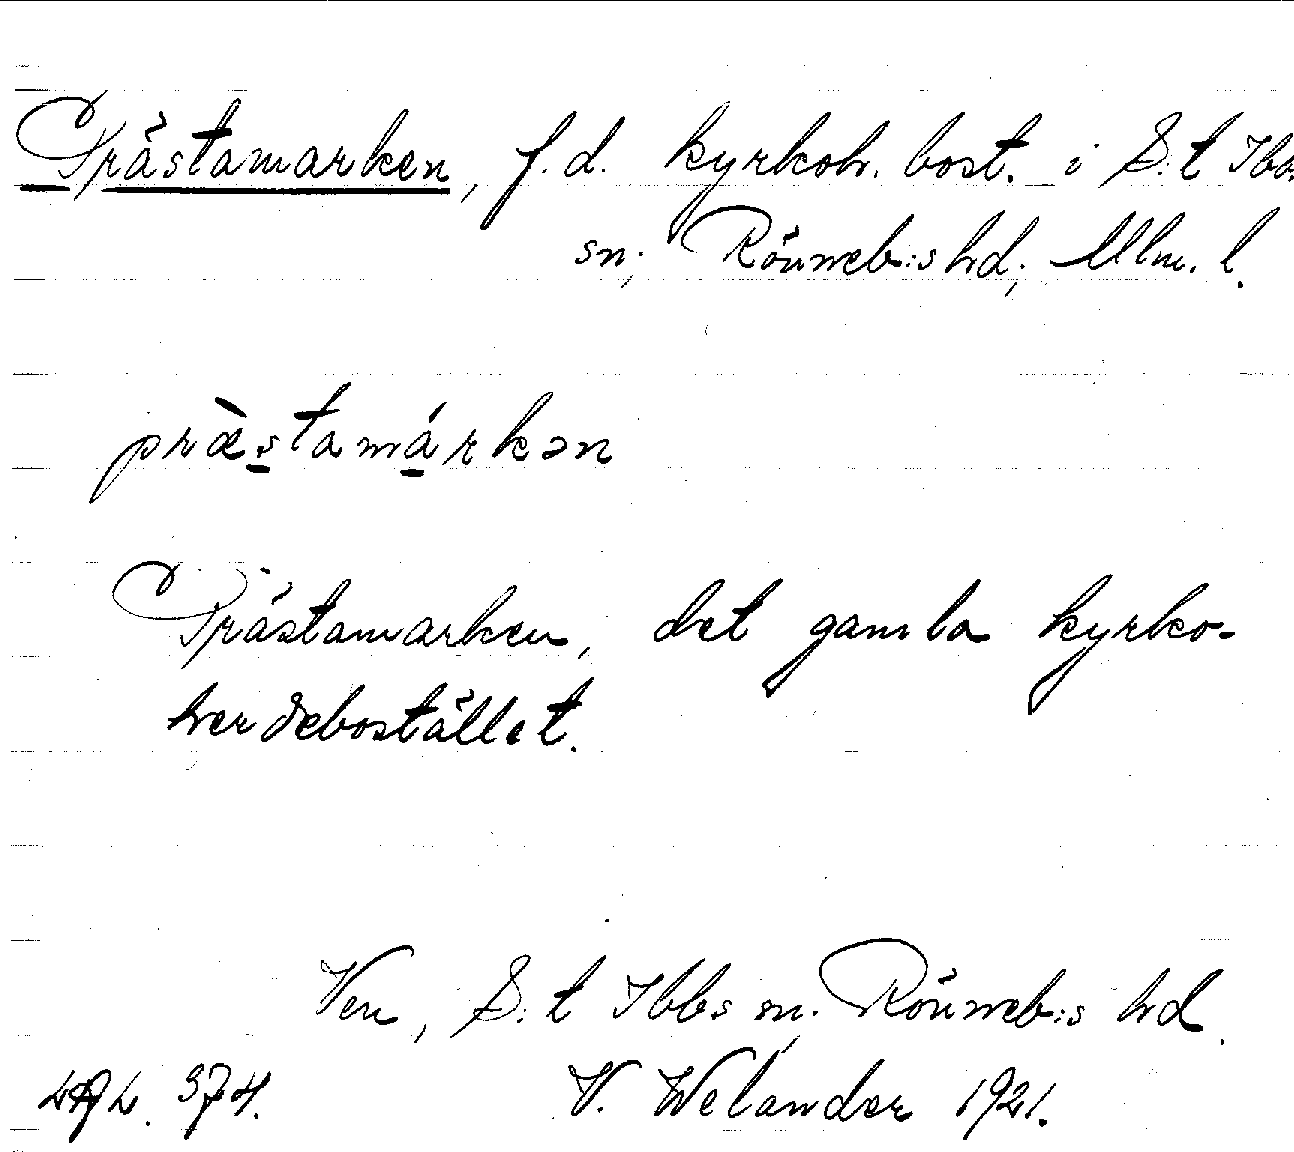 Prästamarken, f.d. kyrkoh. bost. i S:t Ibbs
sn, Rönneb:s hd, Mlm. l.
præ̀stamárkən
Prästamarken, det gamla kyrko-
herdebostället.
Ven, S:t Ibbs sn. Rönneb:s hd.
374. V. Welander 1921.